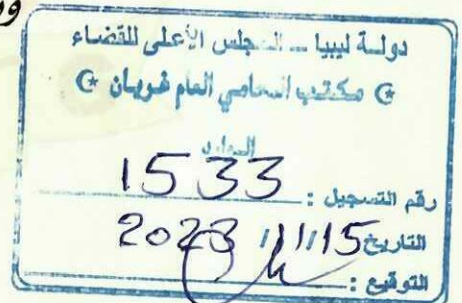 دولة ليبيا – المجلس الأعلى للقضاء
مكتب المحامي العام غريان
الوارد
رقم التسجيل : 1533
التاريخ 2023 / 11 / 15
التوقيع :